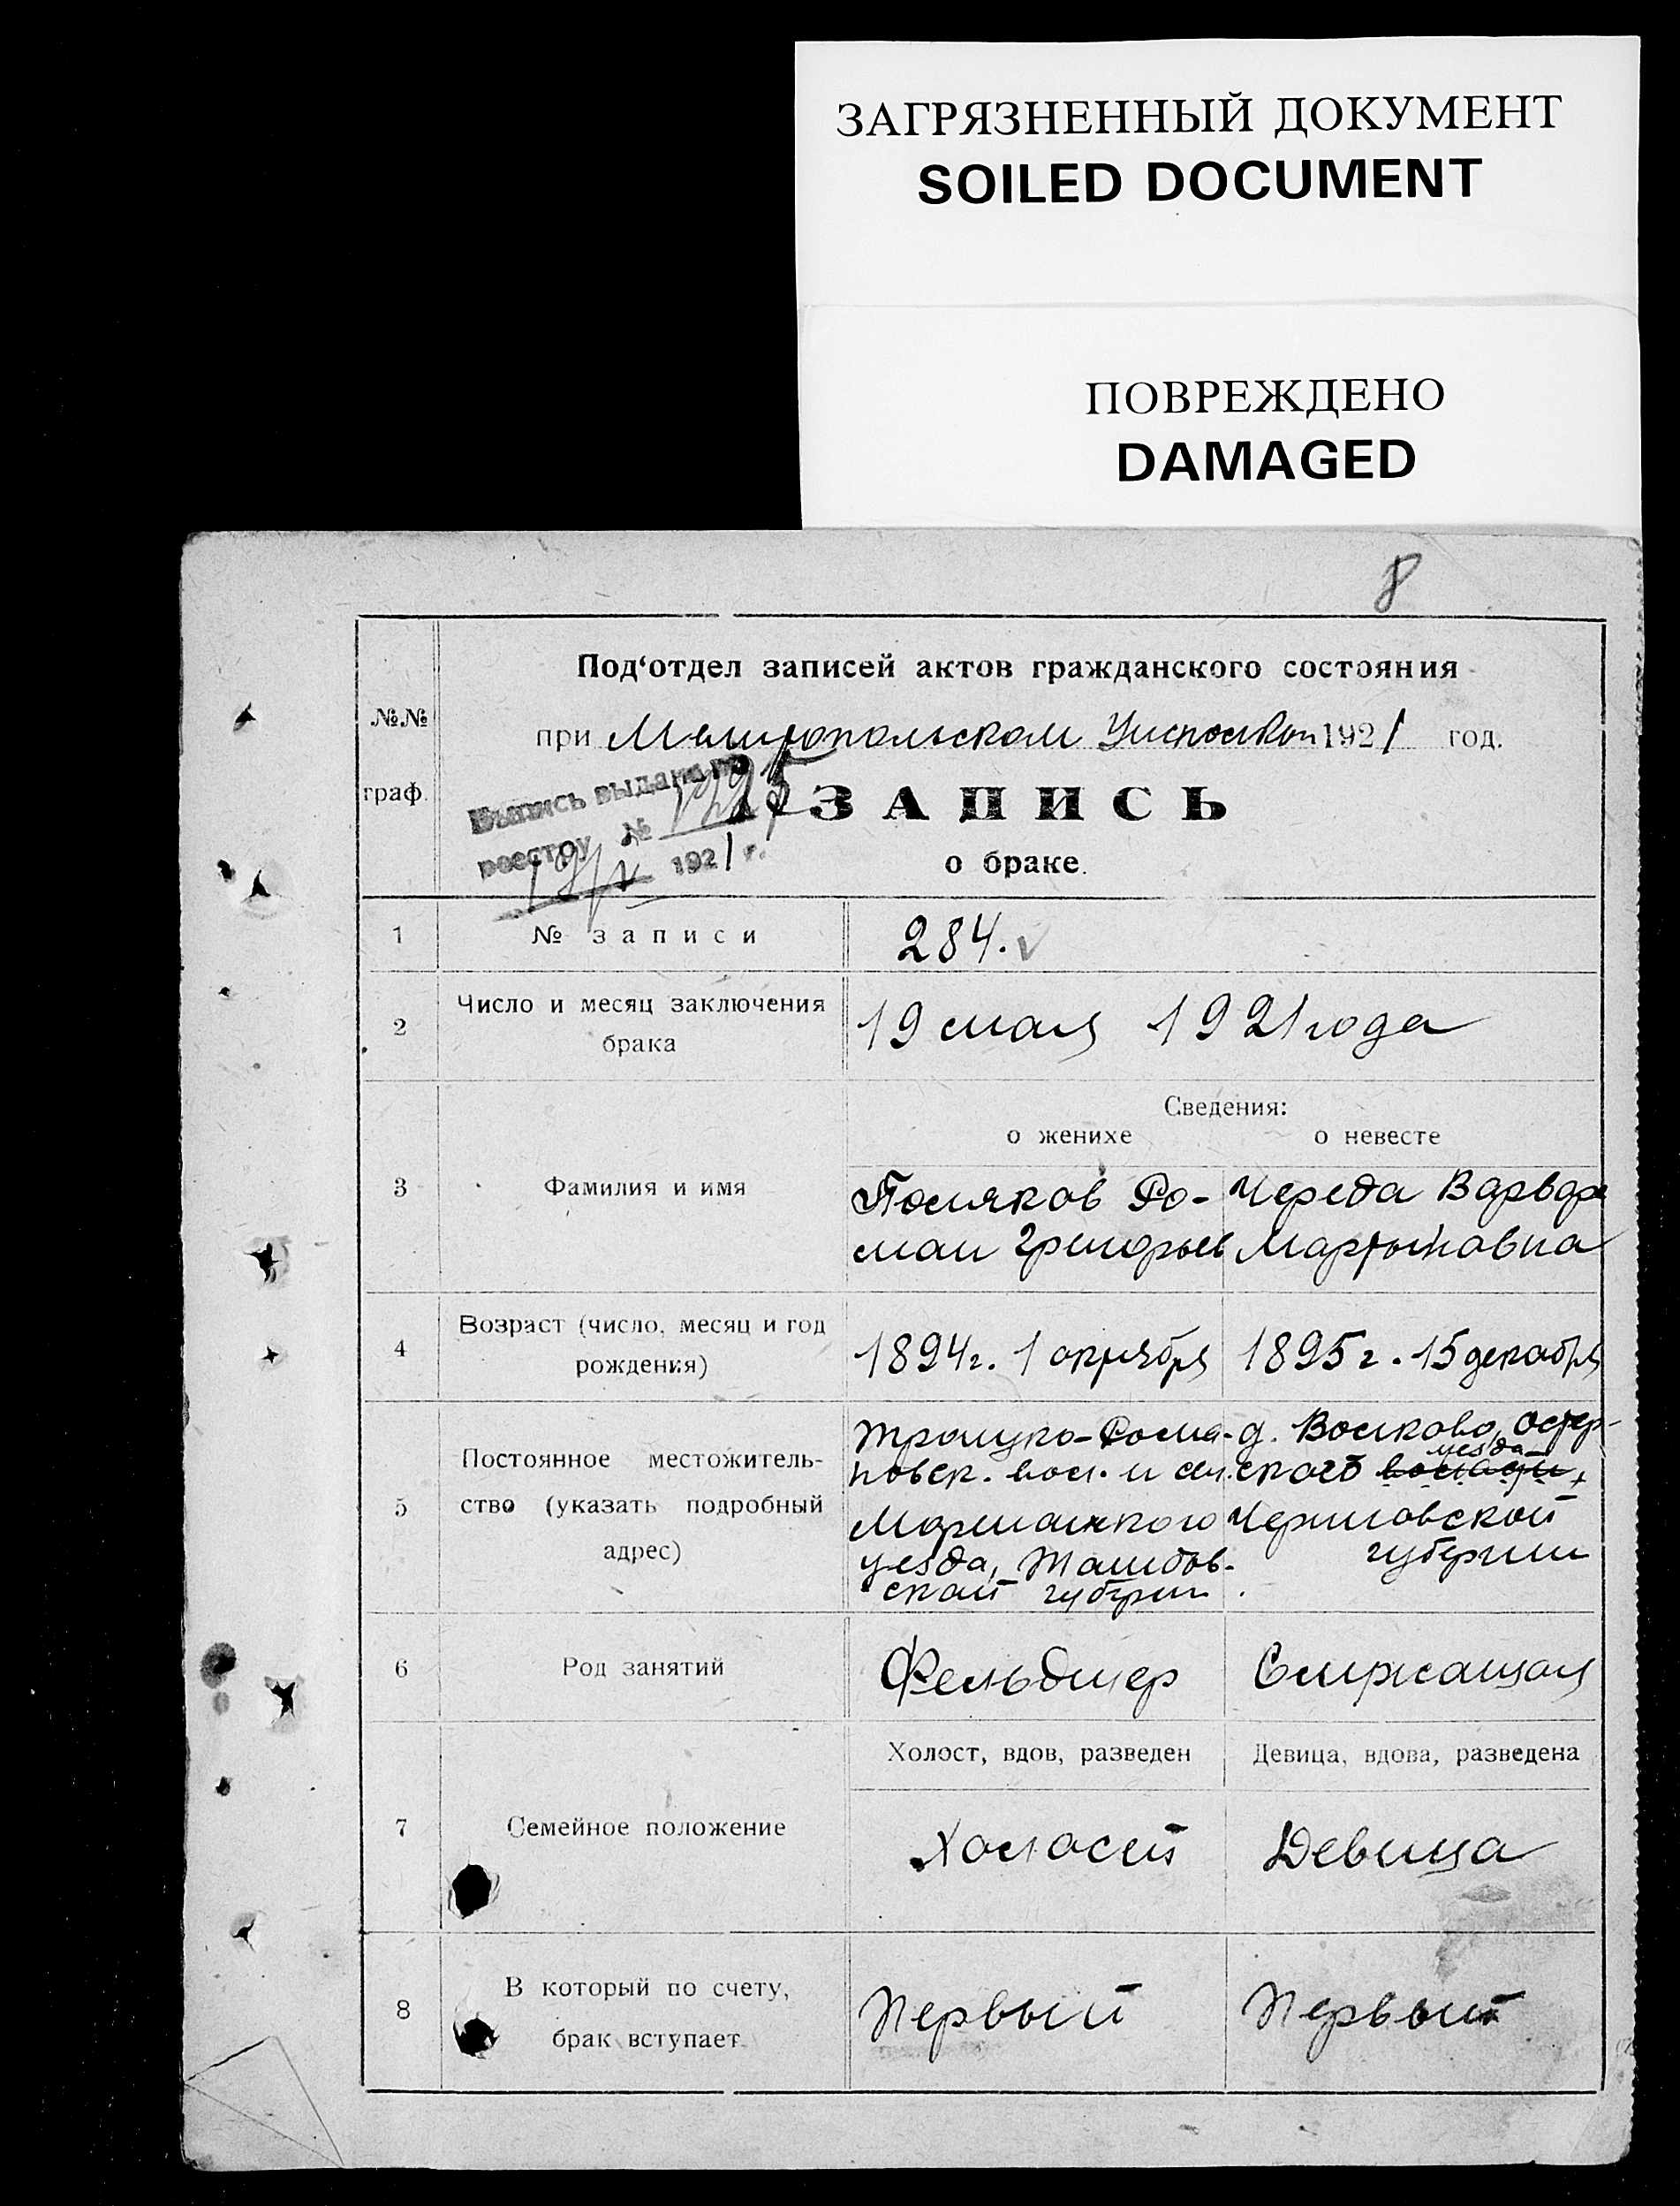 ЗАГРЯЗНЕННЫЙ ДОКУМЕНТ
SOILED DOCUMENT
ПОВРЕЖДЕНО
DAMAGED
8
№№
граф.
Под‘отдел записей актов гражданского состояния
при 1921 год.
Выпись выдана по
реестру №
1921 г.
ЗАПИСЬ
о браке.
1
№ записи
284.
2
Число и месяц заключения
брака
19 мая 1921 года
Сведения:
о женихе
о невесте
3
Фамилия и имя
Поляков Ро-
ман Григорьев
Череда Варвара
Мартыновна
4
Возраст (число, месяц и год
рождения)
1894 г. 1 октября
1895 г. 15 декабря
5
Постоянное местожитель-
ство (указать подробный
адрес)
Троицко-Рома-
новск. вол. и сел.
Моршанского
уезда, Тамбов-
ской губерни
д. Волково, Остер-
уезда
ского волости,
Черниговской
губернии
6
Род занятий
Фельдшер
Служащая
7
Семейное положение
Холост, вдов, разведен
Девица, вдова, разведена
Холостой
Девица
8
В который по счету,
брак вступает
Первый
Первый